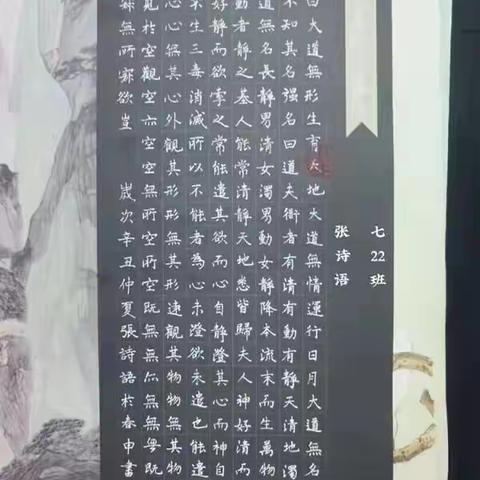 七22班
张诗语
曰大道無形生育天地大道無情運行日月大道無名
不知其名强名曰道夫衜者有清有動有靜天清地濁
道無名長靜男清女濁男動女靜降本流末而生萬物
動者靜之基人能常清靜天地悉皆歸夫人神好清而
好靜而欲牽之常能遣其欲而心自靜澄其心而神自
不生三毒消滅所以不能者為心未澄欲未遣也能遣
心心無其心外觀其形形無其形遠觀其物物無其物
見於空觀空亦空空無所空所空既無無亦無無無既
寂無所寂欲豈
歲次辛丑仲夏張詩語於春申書